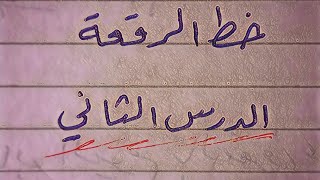 خط الرقعة
الدرس الثاني